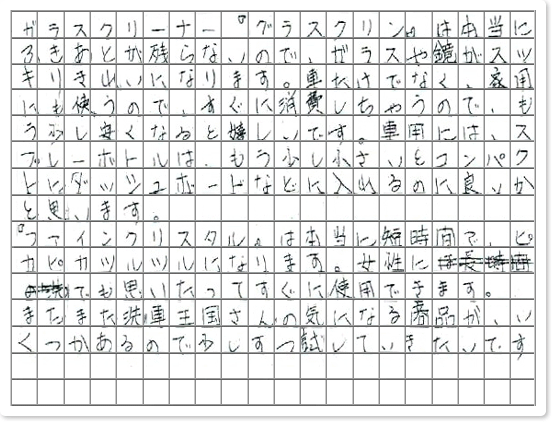 ガラスクリーナー『グラスクリン』は本当に
ふきあとが残らないので、ガラスや鏡がスッ
キリきれいになります。車だけでなく、家用
にも使うので、すぐに消費しちゃうので、も
う少し安くなると嬉しいです。車用には、ス
プレーボトルは、もう少し小さいとコンパク
トにダッシュボードなどに入れるのに良いか
と思います。
『ファインクリスタル』は本当に短時間で、ピ
カピカツルツルになります。女性に
でも思いたってすぐに使用できます。
まだまだ洗車王国さんの気になる商品が、い
くつかあるので少しずつ試していきたいです